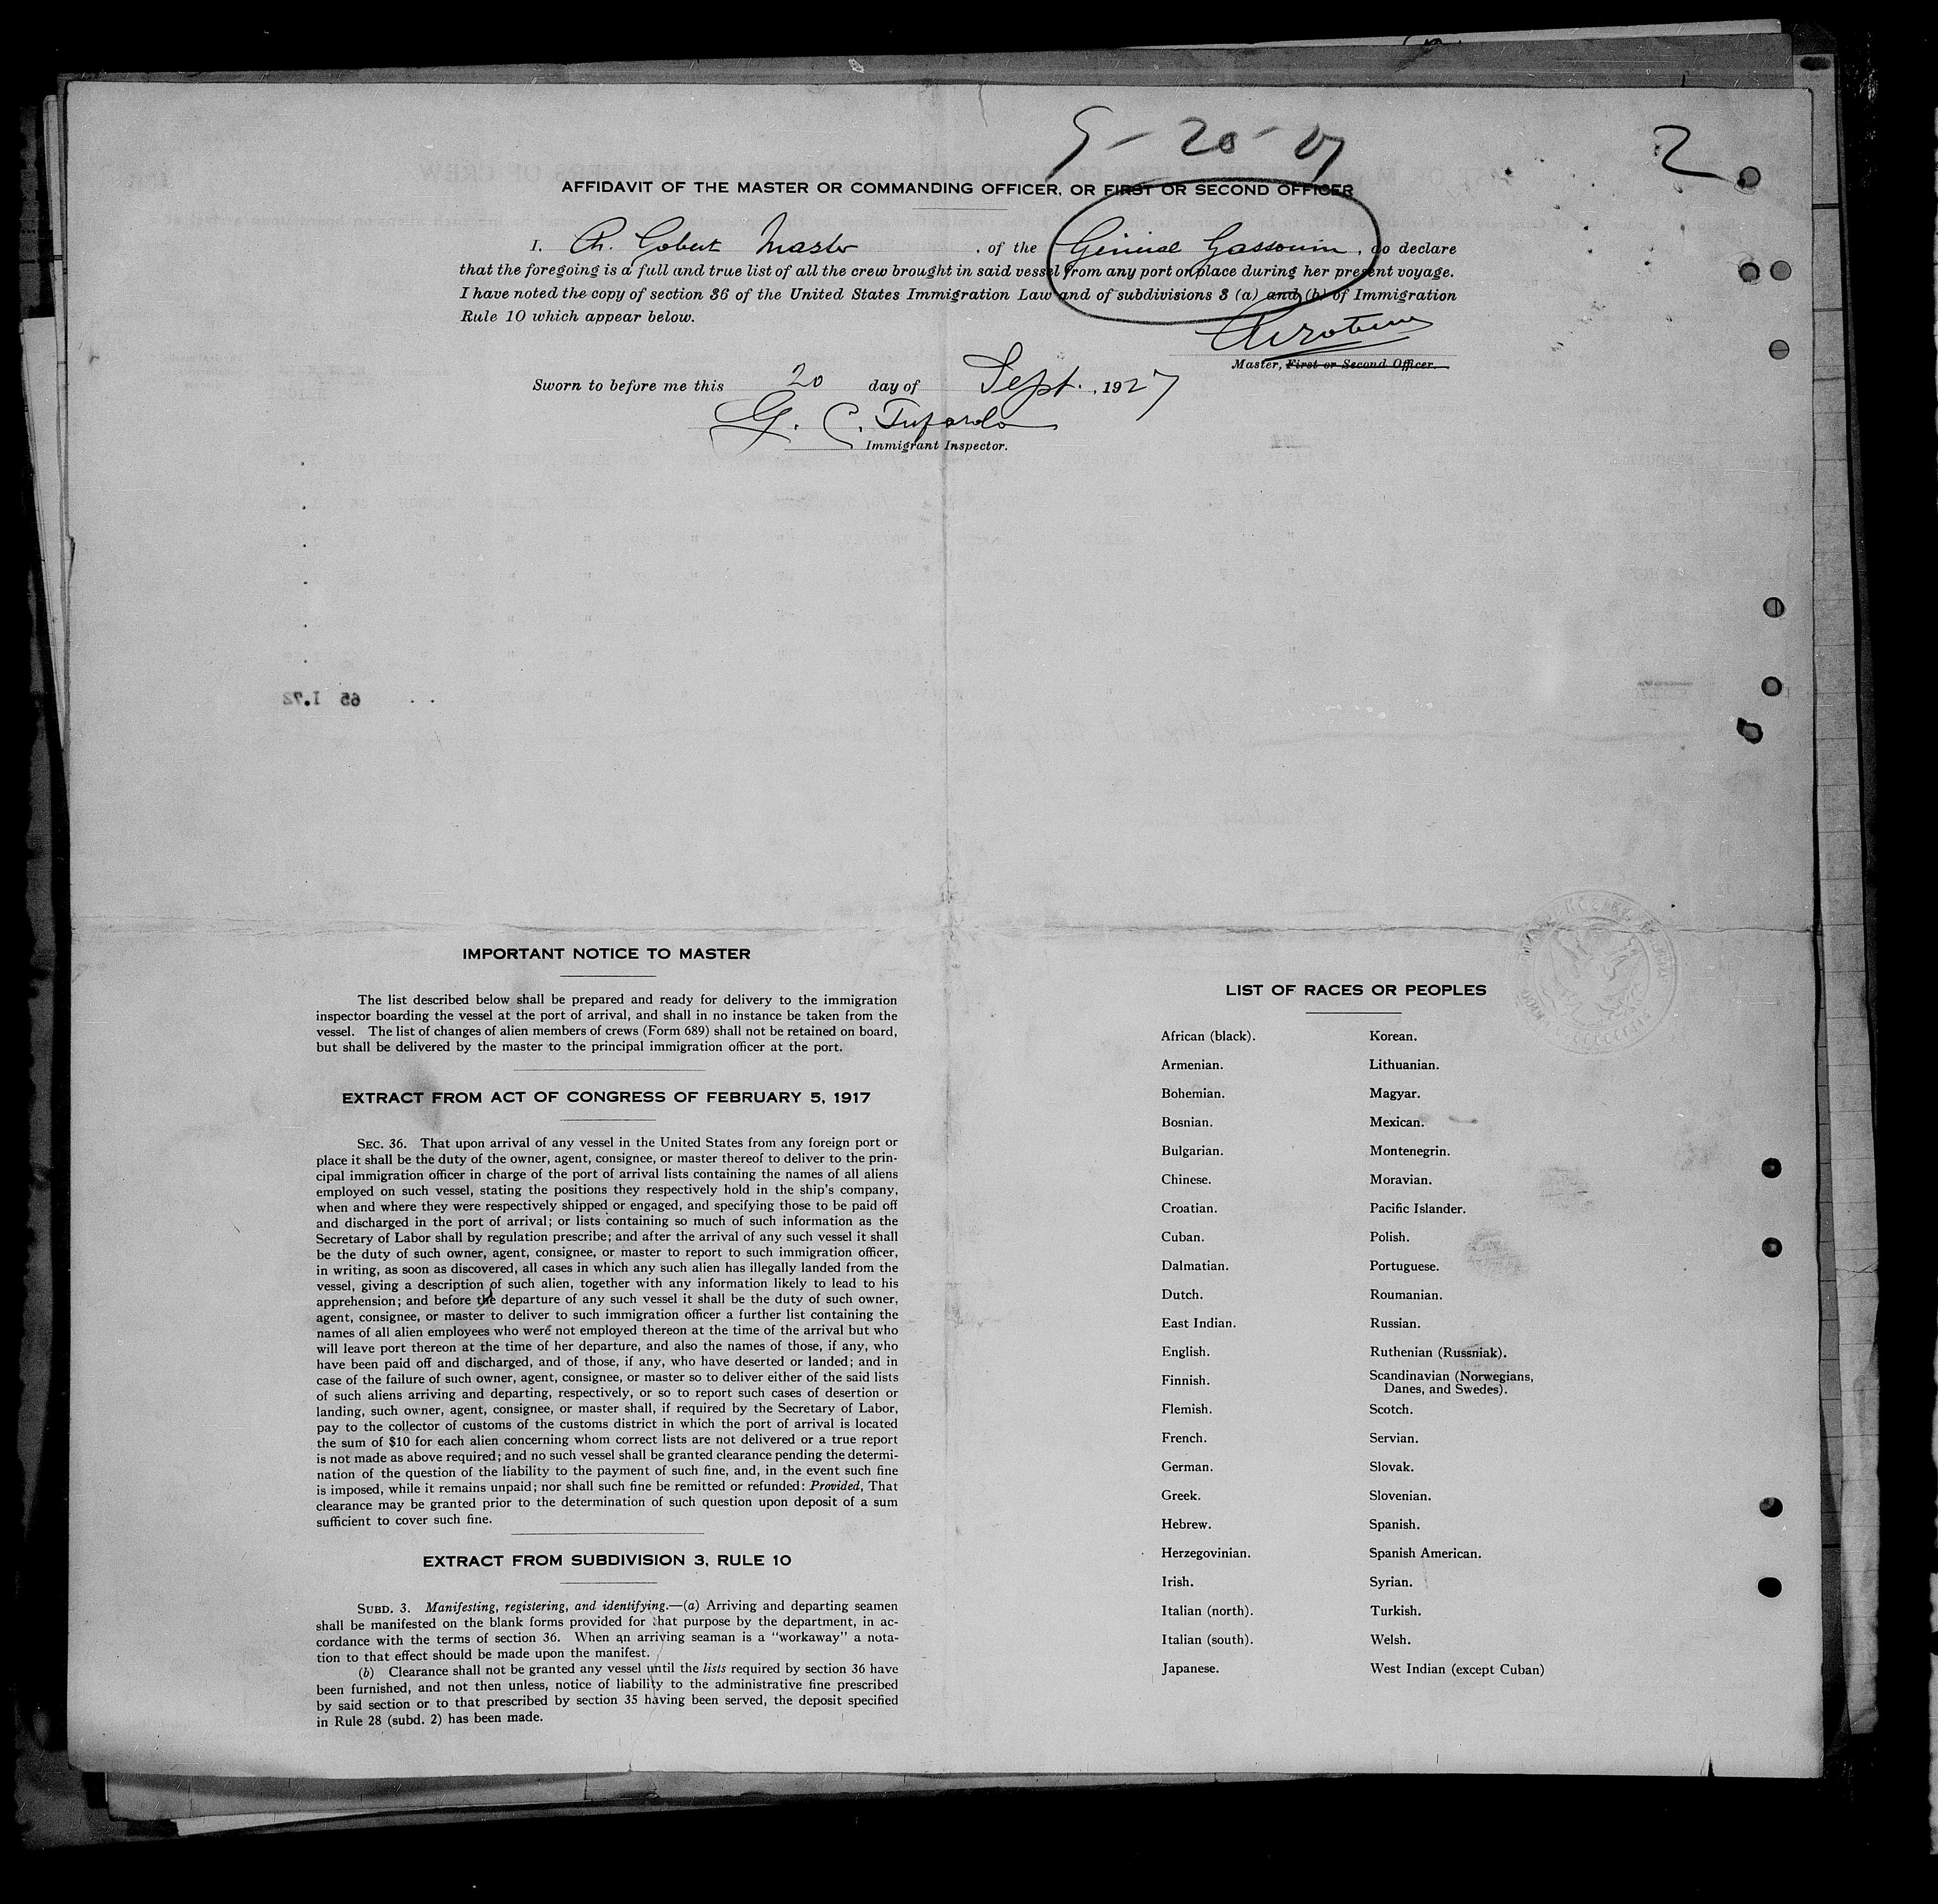 9-20-27
2
AFFIDAVIT OF THE MASTER OR COMMANDING OFFICER, OR FIRST OR SECOND OFFICER
I, Ch. Gobert Master, of the General Gassouin, do declare
that the foregoing is a full and true list of all the crew brought in said vessel from any port or place during her present voyage.
I have noted the copy of section 36 of the United States Immigration Law and of subdivisions 3 (a) and (b) of Immigration
Rule 10 which appear below.
Master, First or Second Officer.
Sworn to before me this 20 day of Sept., 1927
G. C.
Immigrant Inspector.
65 1.72
IMPORTANT NOTICE TO MASTER
The list described below shall be prepared and ready for delivery to the immigration
inspector boarding the vessel at the port of arrival, and shall in no instance be taken from the
vessel. The list of changes of alien members of crews (Form 689) shall not be retained on board,
but shall be delivered by the master to the principal immigration officer at the port.
EXTRACT FROM ACT OF CONGRESS OF FEBRUARY 5, 1917
SEC. 36. That upon arrival of any vessel in the United States from any foreign port or
place it shall be the duty of the owner, agent, consignee, or master thereof to deliver to the prin-
cipal immigration officer in charge of the port of arrival lists containing the names of all aliens
employed on such vessel, stating the positions they respectively hold in the ship's company,
when and where they were respectively shipped or engaged, and specifying those to be paid off
and discharged in the port of arrival; or lists containing so much of such information as the
Secretary of Labor shall by regulation prescribe; and after the arrival of any such vessel it shall
be the duty of such owner, agent, consignee, or master to report to such immigration officer,
in writing, as soon as discovered, all cases in which any such alien has illegally landed from the
vessel, giving a description of such alien, together with any information likely to lead to his
apprehension; and before the departure of any such vessel it shall be the duty of such owner,
agent, consignee, or master to deliver to such immigration officer a further list containing the
names of all alien employees who were not employed thereon at the time of the arrival but who
will leave port thereon at the time of her departure, and also the names of those, if any, who
have been paid off and discharged, and of those, if any, who have deserted or landed; and in
case of the failure of such owner, agent, consignee, or master so to deliver either of the said lists
of such aliens arriving and departing, respectively, or so to report such cases of desertion or
landing, such owner, agent, consignee, or master shall, if required by the Secretary of Labor,
pay to the collector of customs of the customs district in which the port of arrival is located
the sum of $10 for each alien concerning whom correct lists are not delivered or a true report
is not made as above required; and no such vessel shall be granted clearance pending the determi-
nation of the question of the liability to the payment of such fine, and, in the event such fine
is imposed, while it remains unpaid; nor shall such fine be remitted or refunded: Provided, That
clearance may be granted prior to the determination of such question upon deposit of a sum
sufficient to cover such fine.
EXTRACT FROM SUBDIVISION 3, RULE 10
SUBD. 3. Manifesting, registering, and identifying.—(a) Arriving and departing seamen
shall be manifested on the blank forms provided for that purpose by the department, in ac-
cordance with the terms of section 36. When an arriving seaman is a "workaway" a nota-
tion to that effect should be made upon the manifest.
(b) Clearance shall not be granted any vessel until the lists required by section 36 have
been furnished, and not then unless, notice of liability to the administrative fine prescribed
by said section or to that prescribed by section 35 having been served, the deposit specified
in Rule 28 (subd. 2) has been made.
LIST OF RACES OR PEOPLES
African (black).
Armenian.
Bohemian.
Bosnian.
Bulgarian.
Chinese.
Croatian.
Cuban.
Dalmatian.
Dutch.
East Indian.
English.
Finnish.
Flemish.
French.
German.
Greek.
Hebrew.
Herzegovinian.
Irish.
Italian (north).
Italian (south).
Japanese.
Korean.
Lithuanian.
Magyar.
Mexican.
Montenegrin.
Moravian.
Pacific Islander.
Polish.
Portuguese.
Roumanian.
Russian.
Ruthenian (Russniak).
Scandinavian (Norwegians,
Danes, and Swedes).
Scotch.
Servian.
Slovak.
Slovenian.
Spanish.
Spanish American.
Syrian.
Turkish.
Welsh.
West Indian (except Cuban)